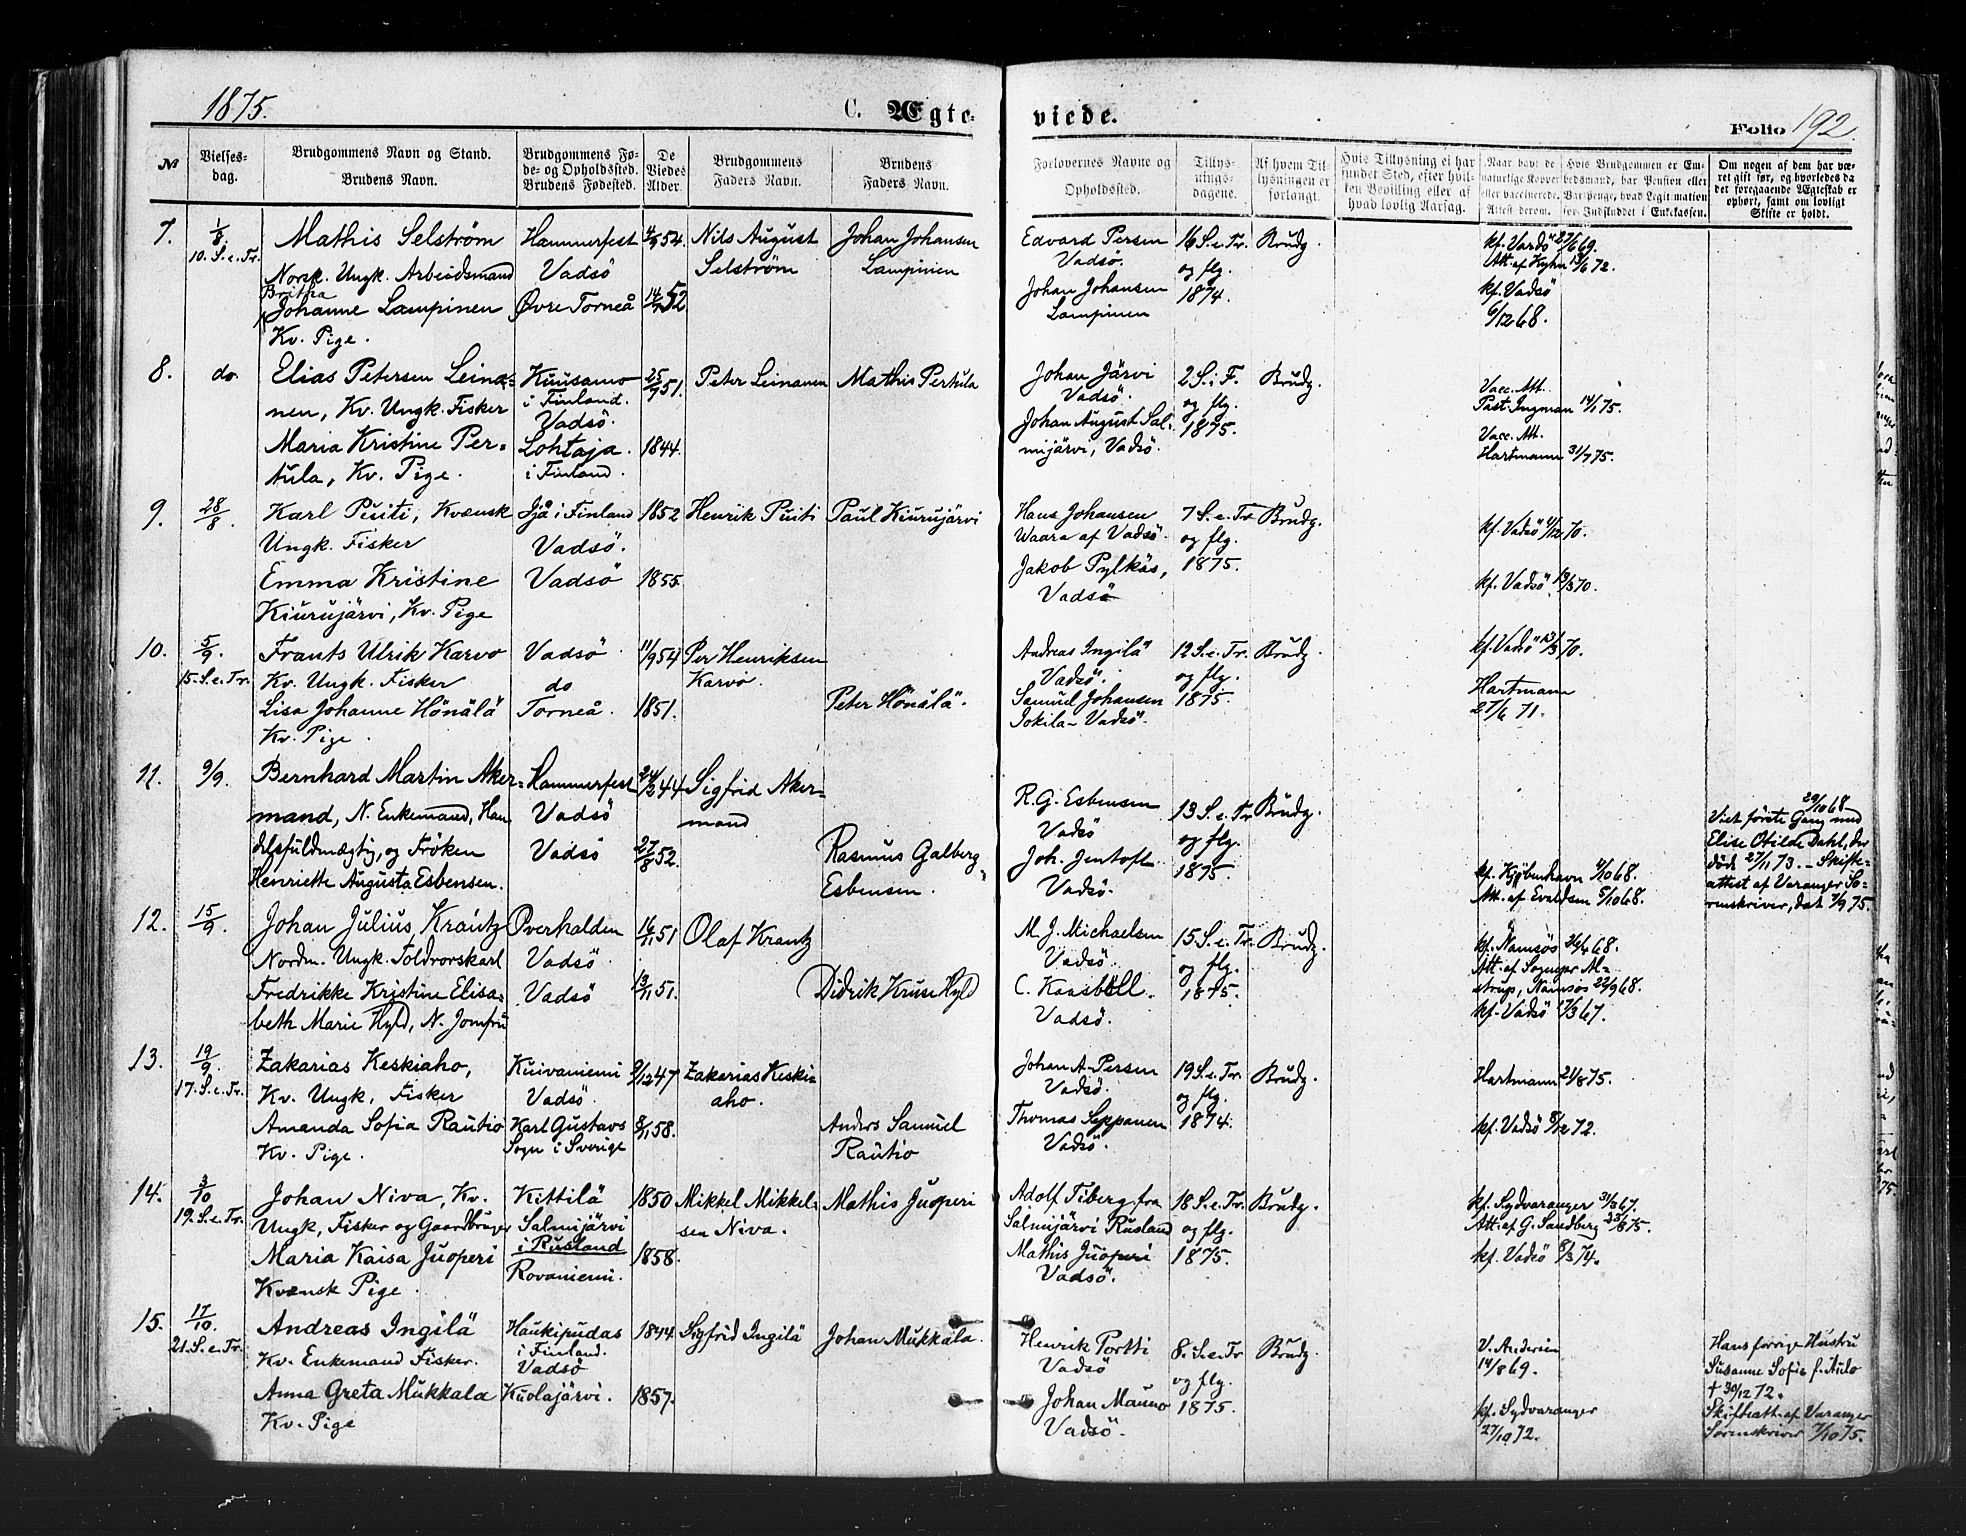 1875.
C. Ægte-
viede.
Folio 192.
№
Vielses-
dag.
Brudgommens Navn og Stand.
Brudens Navn.
Brudgommens Fø-
de- og Opholdssted.
Brudens Fødested.
De
Viedes
Alder.
Brudgommens
Faders Navn.
Brudens
Faders Navn.
Forlovernes Navne og
Opholdssted.
Tillys-
nings-
dagene.
Af hvem Til-
lysningen er
forlangt.
Hvis Tillysning ei har
fundet Sted, efter hvil-
ken Bevilling eller af
hvad lovlig Aarsag.
Naar havt de
naturlige Kopper
eller vaccinerede.
Attest derom.
Hvis Brudgommen er Em-
bedsmand, har Pension eller
Vartpenge, hvad Legitimation
for Indskuddet i Enkekassen.
Om nogen af dem har væ-
ret gift før, og hvorledes da
det foregaaende Ægteskab er
ophørt, samt om lovligt
Skifte er holdt.
7.
1/8.
10. S. e. Tr.
Mathis Selström
Norsk. Ungk. Arbeidsmand
Britha
Johanne Lampinen
Kv. Pige.
Hammerfest
Vadsö
Övre Torneå
4/9 54.
14/7 52
Nils August
Selström
Johan Johansen
Lampinen
Edvard Persen
Vadsö.
Johan Johansen
Lampinen
16 S. e. Tr.
og flg.
1874.
Brudg.
kf. Vardö 27/6 69.
Att. af Kyhn 13/6 72.
kf. Vadsö
6/12 68.
8.
do.
Elias Petersen Leina-
nen, Kv. Ungk. Fisker
Maria Kristine Per-
tula, Kv. Pige.
Kuusamo
i Finland.
Vadsö.
Lohtaja
i Finland.
25/9 51.
1844.
Peter Leinanen
Mathis Pertula
Johan Järvi
Vadsö.
Johan August Sal-
mijärvi, Vadsö.
2 S. i F.
og flg.
1875.
Brudg.
Vacc. Att.
Past. Ingman 14/1 75.
Vacc. Att.
Hartmann 31/7 75.
9.
28/8.
Karl Puiti, Kvænsk
Ungk. Fisker
Emma Kristine
Kiurujärvi, Kv. Pige
Ijå i Finland
Vadsö.
Vadsö
1852
1855.
Henrik Puiti
Paul Kiurujärvi
Hans Johansen
Waara af Vadsö.
Jakob Pylkäs,
Vadsö
7 S. e. Tr.
og flg.
1875.
Brudg.
kf. Vadsö 4/12 70.
kf. Vadsö 13/3 70.
10.
5/9.
15. S. e. Tr.
Frants Ulrik Karvo
Kv. Ungk. Fisker
Lisa Johanne Hönälä
Kv. Pige.
Vadsö
do
Torneå.
11/9 54
1851.
Per Henriksen
Karvo.
Peter Hönälä.
Andreas Ingilä
Vadsö.
Samuel Johansen
Jokila - Vadsö.
12 S. e. Tr.
og flg.
1875.
Brudg.
kf. Vadsö 13/3 70.
Hartmann
27/6 71.
11.
9/9.
Bernhard Martin Aker-
mand, N. Enkemand, Han-
delsfuldmægtig, og Fröken
Henriette Augusta Esbensen.
Hammerfest
Vadsö
Vadsö
24/2 44
27/8 52.
Sigfrid Aker-
mand
Rasmus Galberg
Esbensen.
R. G. Esbensen
Vadsö
Joh. Jentoft
Vadsö.
13 S. e. Tr.
og flg.
1875.
Brudg.
kf. Kjöbenhavn 4/10 68.
Att. af Evaldsen 5/10 68.
29/10 68
Viet förste Gang med
Elise Otilde Dahl, der
döde 27/11 73. - Skifte-
attest af Varanger So-
renskriver, dat 7/9 75.
12.
15/9.
Johan Julius Krantz
Nordm. Ungk. Toldrorskarl
Fredrikke Kristine Elisa-
beth Marie Hyld, N. Jomfru
Overhalden
Vadsö.
Vadsö
16/11 51
13/11 51.
Olaf Krantz
Didrik Kruse Hyld
M. J. Michaelsen
Vadsö.
C. Kaasböll.
Vadsö.
15 S. e. Tr.
og flg.
1875.
Brudg.
Att. af Sognepr Al-
strup, Namsos 22/9 68.
kf. Vadsö 17/3 67.
13.
19/9.
17. S. e. Tr.
Zakarias Keskiaho,
Kv. Ungk, Fisker
Amanda Sofia Rautio
Kv. Pige.
Kuivaniemi
Vadsö.
Karl Gustavs
Sogn i Sverige
2/12 47
8/11 58.
Zakarias Keski-
aho.
Anders Samuel
Rautio
Johan A. Persen
Vadsö.
Thomas Seppanen
Vadsö.
19 S. e. Tr.
og flg.
1874.
Brudg.
Hartmann 21/8 75.
kf. Vadsö 8/12 72.
14.
3/10
19. S. e. Tr.
Johan Niva, Kv.
Ungk, Fisker og Gaardbruger
Maria Kaisa Juoperi
Kvænsk Pige.
Kittilä
Salmijärvi
i Rusland
Rovaniemi.
1850
1858.
Mikkel Mikkel-
sen Niva.
Mathis Juoperi
Adolf Tiberg fra
Salmijärvi Rusland
Mathis Juoperi
Vadsö.
18 S. e. Tr.
og flg.
1875.
Brudg.
kf. Sydvaranger 31/3 67.
Att. af G. Sandberg 23/8 75.
kf. Vadsö 8/3 74.
15.
17/10.
21. S. e. Tr.
Andreas Ingilä
Kv. Enkemand Fisker.
Anna Greta Mukkala
Kv. Pige
Haukipudas
i Finland.
Vadsö
Kuolajärvi.
1844
1857.
Sigfrid Ingilä
Johan Mukkala.
Henrik Portti
Vadsö
Johan Mauno
Vadsö.
8. S. e. Tr
og flg.
1875.
Brudg.
14/8 69.
kf. Sydvaranger
27/10 72.
Hans forrige Hustru
Susanne Sofie f. Aulo
† 30/12 72.
Skifteatt. af Varanger
Sorenskriver 7/10 75.